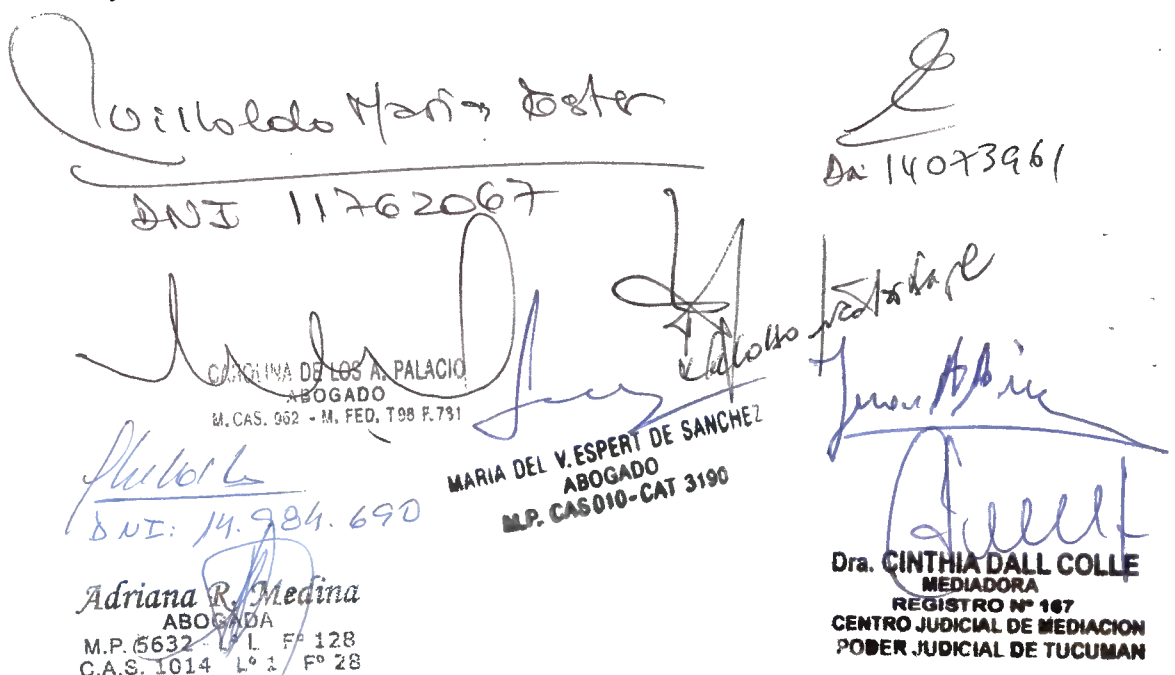 Villoldo Maria Ester
DNI 11762067
14073961
CAROLINA DE LOS A. PALACIO
ABOGADO
M. CAS. 962 - M. FED. T98 F.731
MARIA DEL V. ESPERT DE SANCHEZ
ABOGADO
M.P. CAS 010-CAT 3190
DNI: 14.984.690
Adriana R. Medina
ABOGADA
M.P. 5632 Lº L Fº 128
C.A.S. 1014 Lº 1 Fº 28
Dra. CINTHIA DALL COLLE
MEDIADORA
REGISTRO Nº 167
CENTRO JUDICIAL DE MEDIACION
PODER JUDICIAL DE TUCUMAN